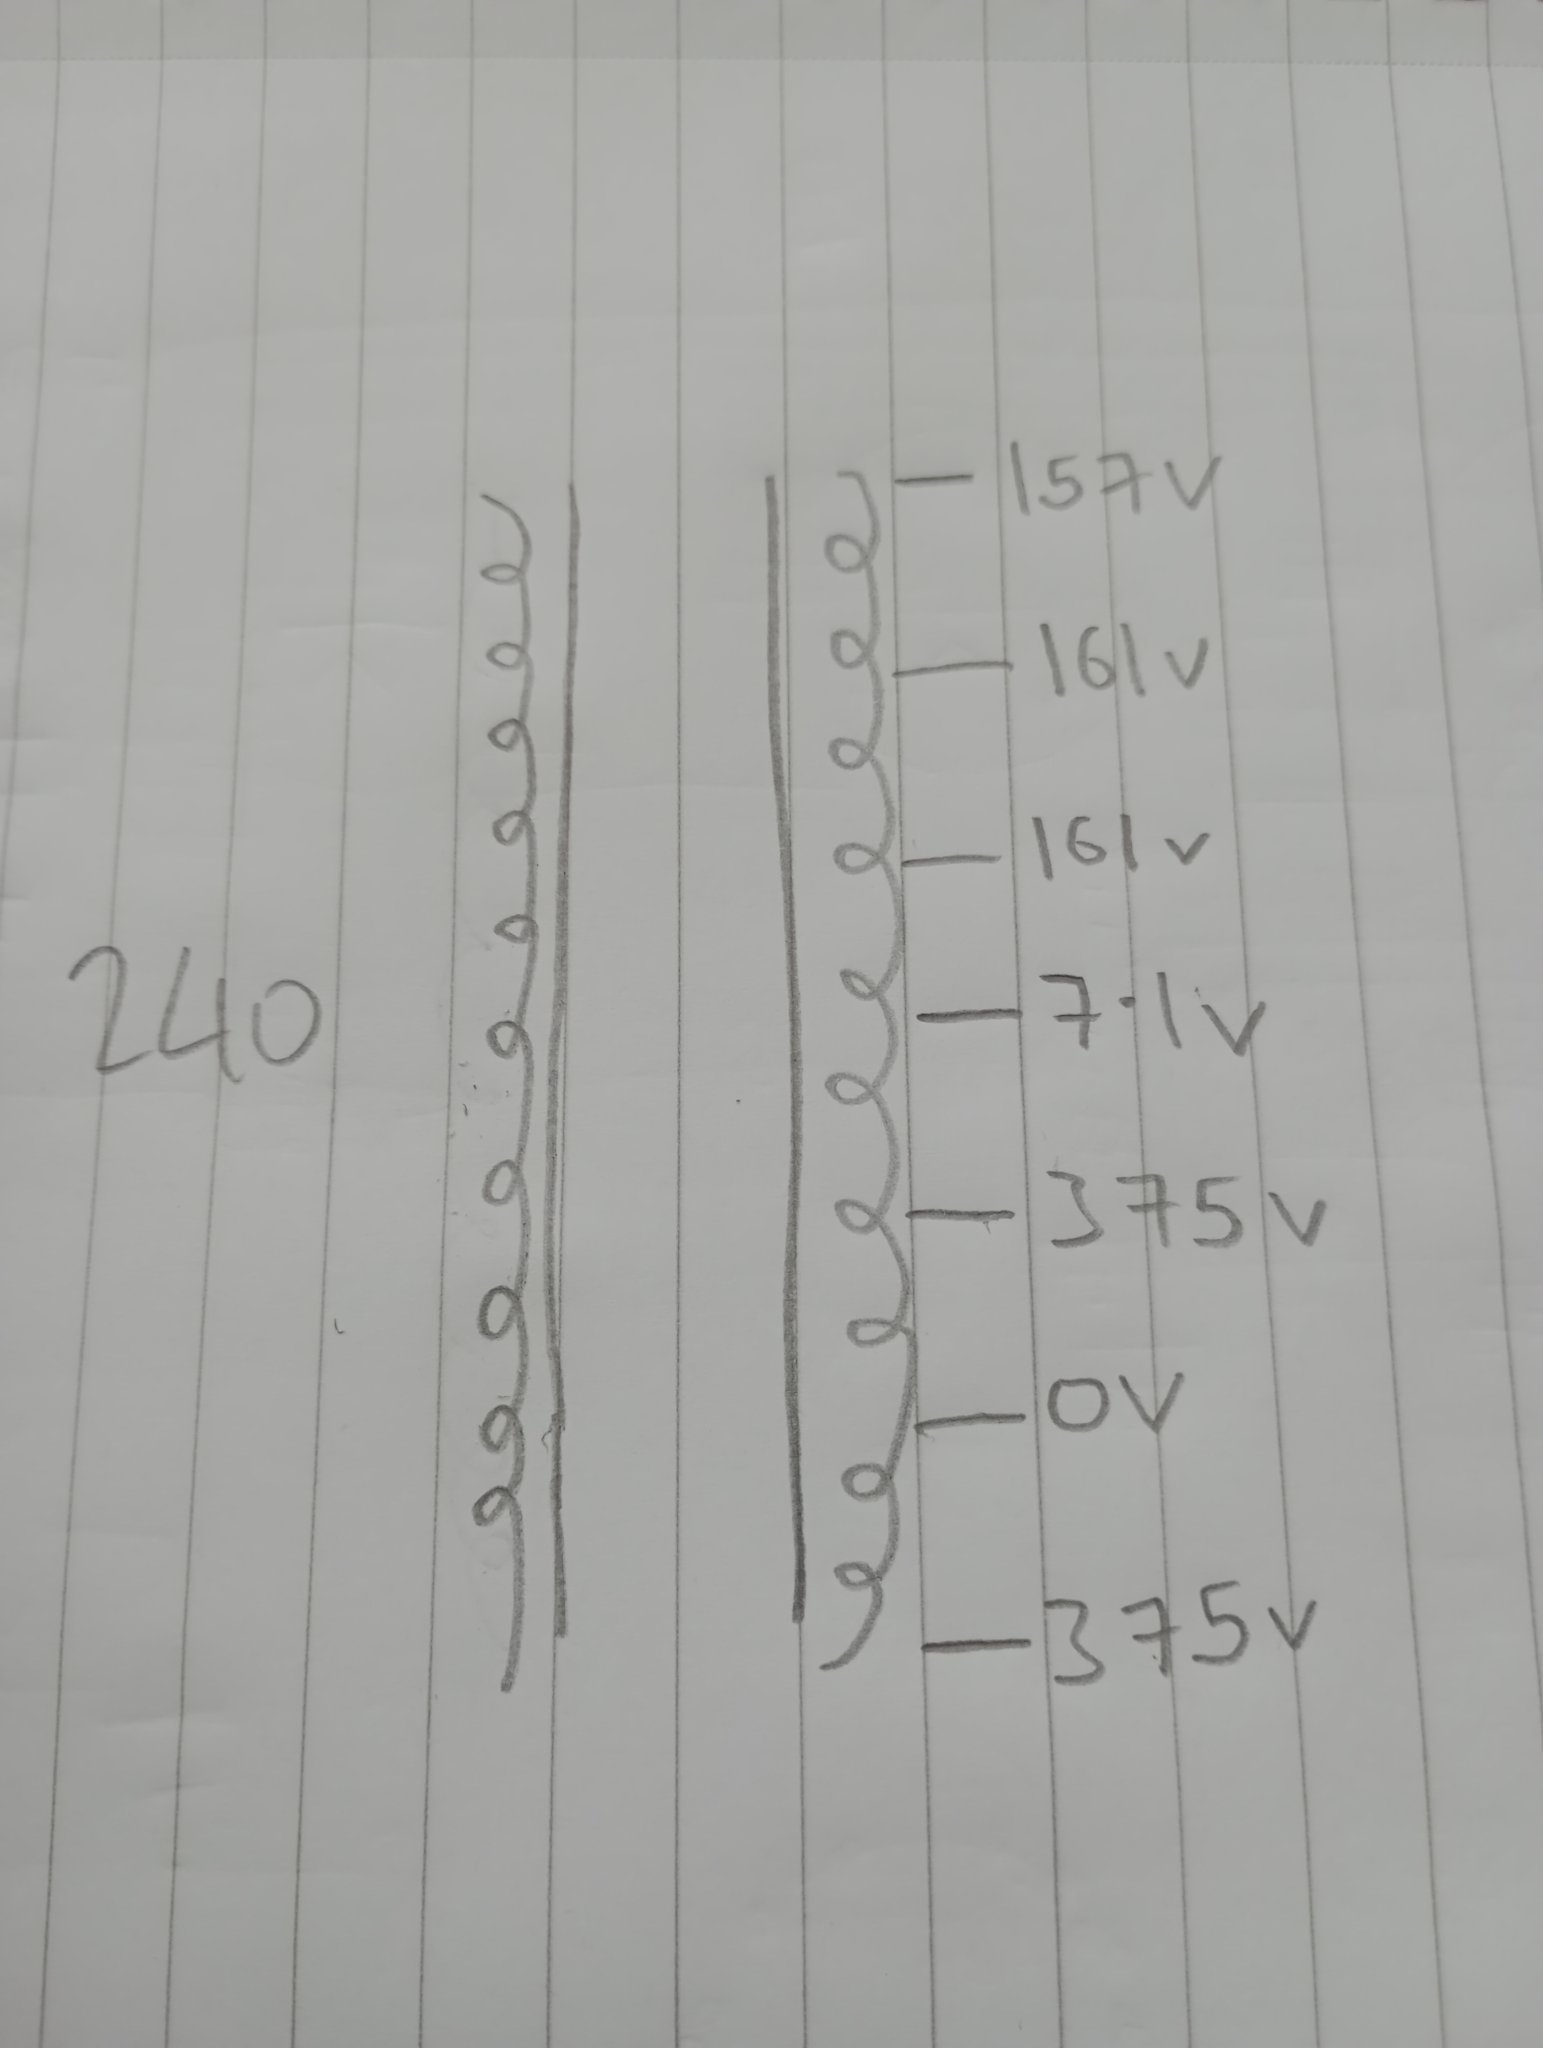 157v
161v
161v
240
7.1v
375v
0V
375v